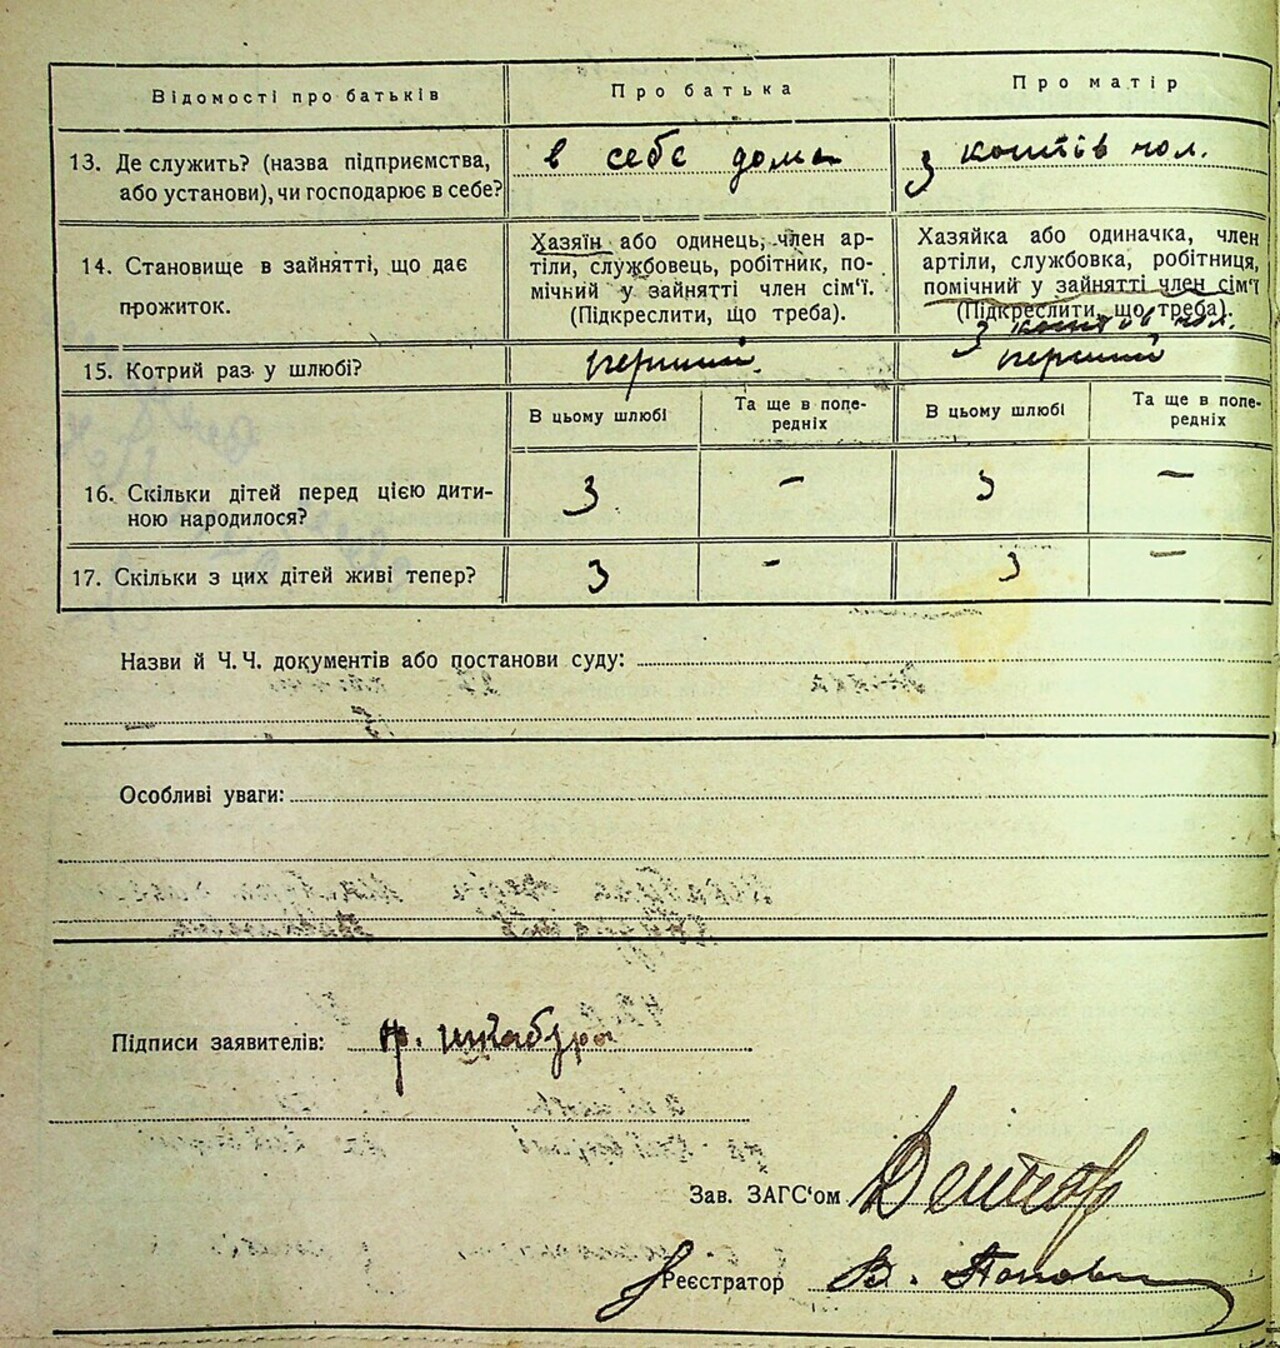 Відомості про батьків
Про батька
Про матір
13. Де служить? (назва підприємства,
або установи), чи господарює в себе?
в себе дома
З коштів чол.
14. Становище в зайнятті, що дає
прожиток.
Хазяїн або одинець, член ар-
тілі, службовець, робітник, по-
мічний у зайнятті член сім'ї.
(Підкреслити, що треба).
Хазяйка або одиначка, член
артіли, службовка, робітниця,
помічний у зайнятті член сім'ї
(Підкреслити, що треба).
З коштів чол.
15. Котрий раз у шлюбі?
перший
перший
В цьому шлюбі
Та ще в попе-
редніх
В цьому шлюбі
Та ще в попе-
редніх
16. Скільки дітей перед цією дити-
ною народилося?
3
-
3
-
17. Скільки з цих дітей живі тепер?
3
-
3
-
Назви й Ч. Ч. документів або постанови суду:
Особливі уваги:
Підписи заявителів:
Шкабура
Зав. ЗАГС'ом
Реєстратор В.